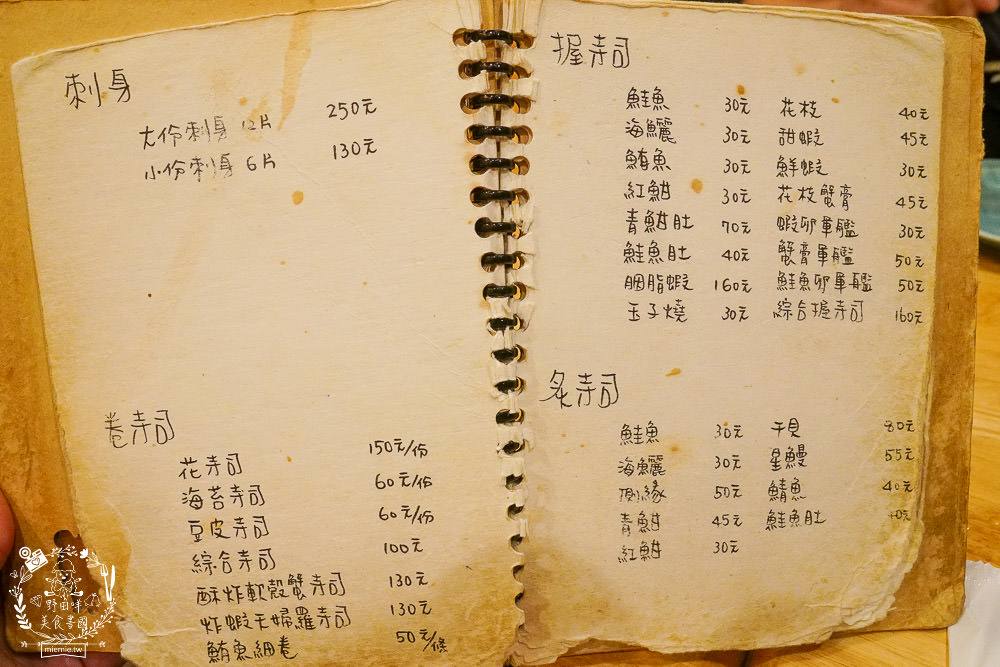 刺身
大份刺身 12片 250元
小份刺身 6片 130元
卷寿司
花寿司 150元/份
海苔寿司 60元/份
豆皮寿司 60元/份
綜合寿司 100元
酥炸軟殼蟹寿司 130元
炸蝦天婦羅寿司 130元
鮪魚細卷 50元/條
握寿司
鮭魚 30元
海鱺 30元
鮪魚 30元
紅魽 30元
青魽肚 70元
鮭魚肚 40元
胭脂蝦 160元
玉子燒 30元
花枝 40元
甜蝦 45元
鮮蝦 30元
花枝蟹膏 45元
蝦卵軍艦 30元
蟹膏軍艦 50元
鮭魚卵軍艦 50元
綜合握寿司 160元
炙寿司
鮭魚 30元
海鱺 30元
側緣 50元
青魽 45元
紅魽 30元
干貝 80元
星鰻 55元
鯖魚 40元
鮭魚肚
野田咩
美食樂園
miemie.tw